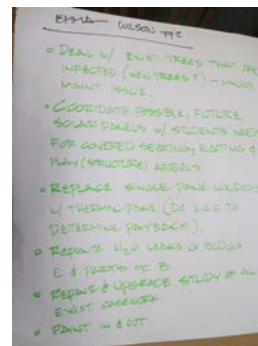 EMMA WILSON - pg 2
• DEAL W/ EXIST TREES THAT ARE
INFECTED (NEW TREES?) - MAJOR
MAINT ISSUE.
• COORIDATE POSSIBLE, FUTURE
SOLAR PANELS W/ STUDENTS' NEED
FOR COVERED SEATING, EATING &
PLAY (STRUCTURE) AREAS.
• REPLACE SINGLE PANE WINDOWS
W/ THERMAL PANE (DO L.C.C. TO
DETERMINE PAYBACK).
• REPAIR H2O LEAKS @ BLDGS
E & PARTS OF B.
• REPAIR & UPGRADE STUDY OF ALL
EXIST CASEWORK.
• PAINT IN & OUT.